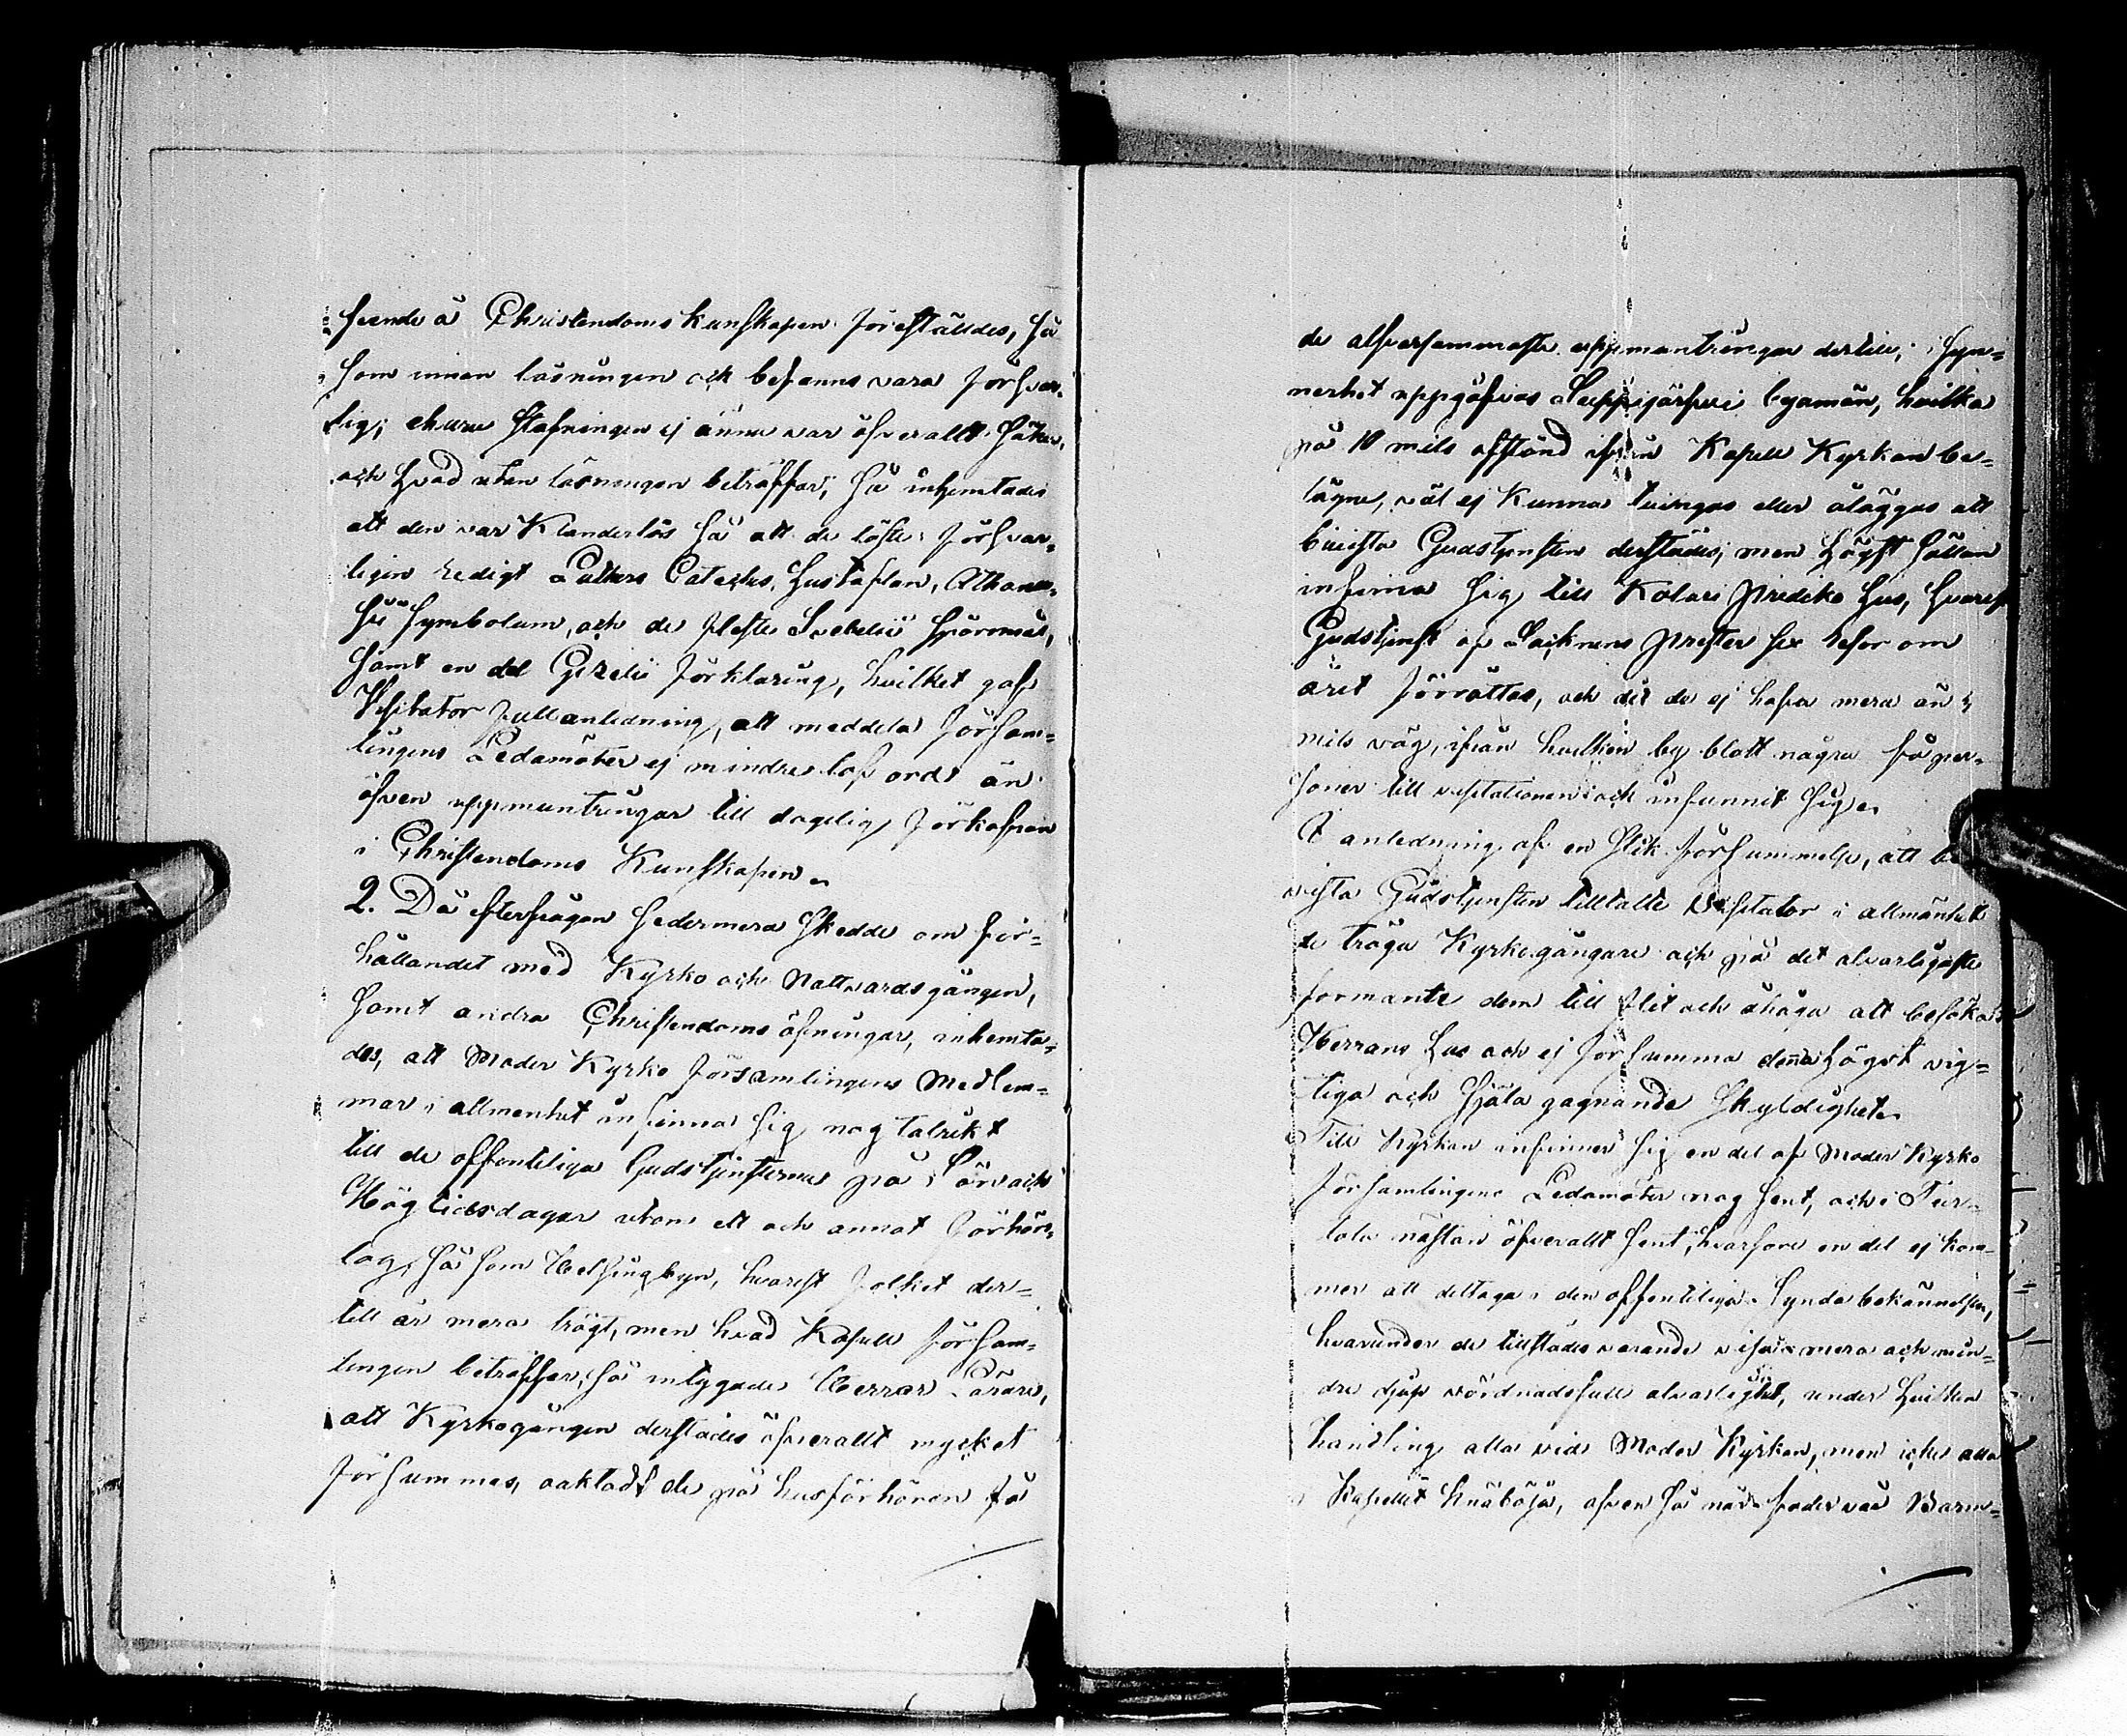 seende å Christendoms kunskapen föreställdes, så
som innan läsningen ock befanns vara försvar-
lig; churu stafningen ej ännu var öfverallt säker,
och hvad utan läsningen beträffar, så inhemtades
att den var Klanderlös så att de läste försvar-
ligen redigt Luthers Cateches, Hustaflan, Athana-
sii Symbolum, och de fleste Svebelii spörsmål,
samt en del Gezelii förklaring, hvilket gaf
Visitator full anledning, att meddela församl-
lingens Ledamöter ej mindre lof ord än
öfven uppmuntringar till daglig förkofran
i Christendoms Kunskapen.
2. Då efterfrågan sedermera skedde om för-
hållandet med Kyrko och Nattvardsgången,
samt andra Christendoms öfningar, inhemta-
des, att Moder Kyrko församlingens Medlem-
mar i allmenhet infinna sig nog talrikt
till de offenteliga Gudstjensterna på Sön och
Högtidsdagar utom ett och annat förhörs-
lag, så som Helsingbyn, hvarest folket der-
till är mera trögt, men hvad Kapell försam-
lingen beträffar, så intygade Herrar Lärare,
att Kyrkogången derstädes öfverallt mycket
försummas, oaktadt de på husförhören få
de alfversammaste uppmuntringar dertill; i syn-
nerhet uppgåfvos Sieppijärfvi byamän, hvilka
på 10 mils afstånd ifrån Kapell Kyrkan be-
lägne, väl ej kunna tvingas eller åläggas att
bevista Gudstjensten derstädes, men högst sällan
infinna sig till Kolari Predike hus, hvarest
Gudstjenst af Socknens Prester sex resor om
året förrättas, och dit de ej hafva mera än 4
mils väg, ifrån hvilken by blott några få per-
soner till visitationen ock infunnit sig.
I anledning af en slik försummelse, att be-
vista Gudstjensten tilltalte Visitator i allmänhet
de tröga Kyrkogångare och på det alvarligaste
förmante dem till flit och åhåga att besöka
Herrans hus och ej försumma denna högst vig-
tiga och själa gagnande skyldighet.
Till Kyrkan infinner sig en del af Moder Kyrko
församlingens Ledamöter nog sent, och i Tur-
tola nästan öfverallt sent, hvarfore en del ej kom-
mer att deltaga i den offenteliga Synda bekännelsen,
hvarunder de tillstädes varande visa mera och min-
dre djup vördnadsfull alvarlighet, under hvilken
handling alla vid Moder Kyrkan, men icke alla
i Kapellet knäböja, äfven så när fader vår Barm-